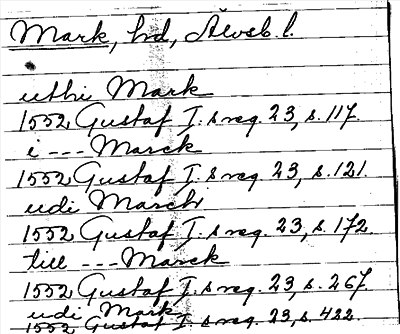 Mark, hd, Älvsb. l.
uthi Mark
1552 Gustaf I:s reg. 23, s. 117.
i --- Marck
1552 Gustaf I:s reg. 23, s. 121.
udi March
1552 Gustaf I:s reg. 23, s. 172
till --- Marck
1552 Gustaf I:s reg. 23, s. 267.
udi Mark
1552 Gustaf I:s reg. 23, s. 422.